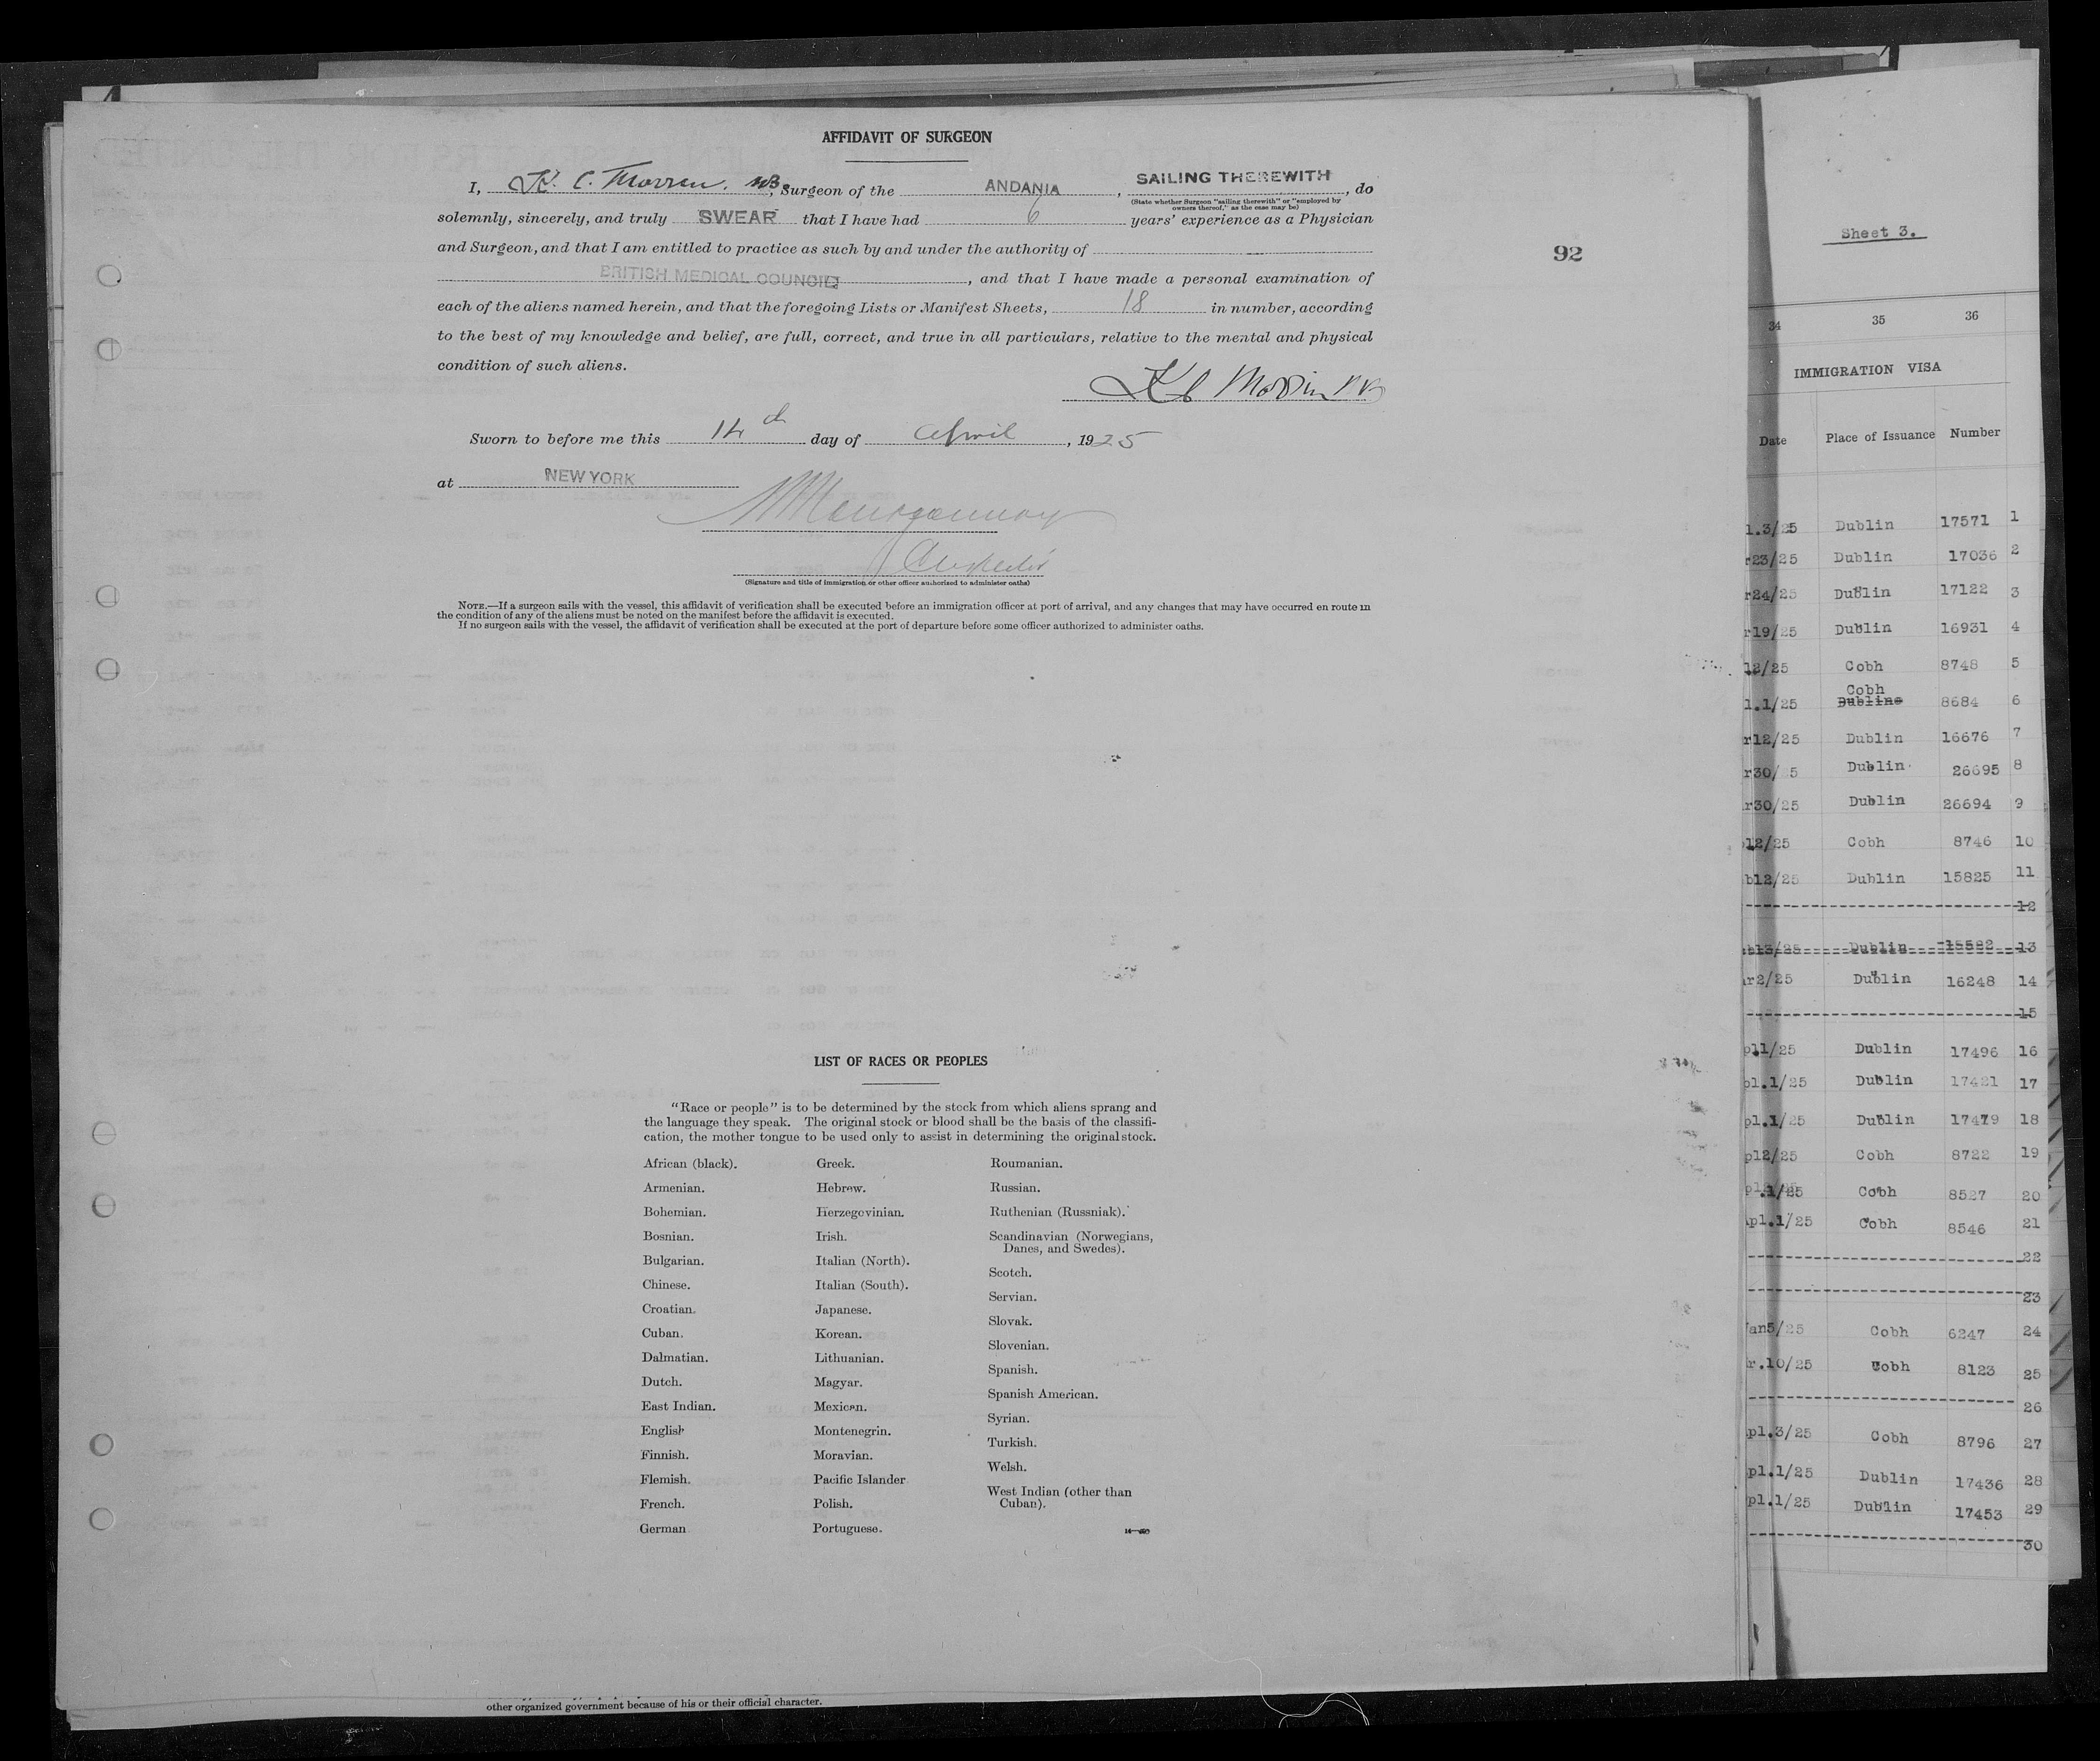 AFFIDAVIT OF SURGEON
I, K. C. Morren. MB, Surgeon of the ANDANIA, SAILING THEREWITH, do
(State whether Surgeon "sailing therewith" or "employed by
owners thereof," as the case may be)
solemnly, sincerely, and truly SWEAR that I have had 6 years' experience as a Physician
and Surgeon, and that I am entitled to practice as such by and under the authority of
BRITISH MEDICAL COUNCIL, and that I have made a personal examination of
each of the aliens named herein, and that the foregoing Lists or Manifest Sheets, 18 in number, according
to the best of my knowledge and belief, are full, correct, and true in all particulars, relative to the mental and physical
condition of such aliens.
Sworn to before me this 14th day of April, 1925
at NEW YORK
(Signature and title of immigration or other officer authorized to administer oaths)
NOTE.—If a surgeon sails with the vessel, this affidavit of verification shall be executed before an immigration officer at port of arrival, and any changes that may have occurred en route in
the condition of any of the aliens must be noted on the manifest before the affidavit is executed.
If no surgeon sails with the vessel, the affidavit of verification shall be executed at the port of departure before some officer authorized to administer oaths.
92
LIST OF RACES OR PEOPLES
"Race or people" is to be determined by the stock from which aliens sprang and
the language they speak. The original stock or blood shall be the basis of the classifi-
cation, the mother tongue to be used only to assist in determining the original stock.
African (black).
Armenian.
Bohemian.
Bosnian.
Bulgarian.
Chinese.
Croatian.
Cuban.
Dalmatian.
Dutch.
East Indian.
English
Finnish.
Flemish.
French.
German
Greek.
Hebrew.
Herzegovinian.
Irish.
Italian (North).
Italian (South).
Japanese.
Korean.
Lithuanian.
Magyar.
Mexican.
Montenegrin.
Moravian.
Pacific Islander
Polish.
Portuguese.
Roumanian.
Russian.
Ruthenian (Russniak).
Scandinavian (Norwegians,
Danes, and Swedes).
Scotch.
Servian.
Slovak.
Slovenian.
Spanish.
Spanish American.
Syrian.
Turkish.
Welsh.
West Indian (other than
Cuban).
other organized government because of his or their official character.
Sheet 3.
34 35 36
IMMIGRATION VISA
Date Place of Issuance Number
l.3/25 Dublin 17571 1
r23/25 Dublin 17036 2
r24/25 Dublin 17122 3
r19/25 Dublin 16931 4
12/25 Cobh 8748 5
Cobh
l.1/25 Dubline 8684 6
r12/25 Dublin 16676 7
r30/25 Dublin 26695 8
r30/25 Dublin 26694 9
12/25 Cobh 8746 10
b12/25 Dublin 15825 11
12
b13/25 Dublin 15582 13
r2/25 Dublin 16248 14
15
pl1/25 Dublin 17496 16
pl.1/25 Dublin 17421 17
pl.1/25 Dublin 17479 18
pl2/25 Cobh 8722 19
pl.1/25 Cobh 8527 20
pl.1/25 Cobh 8546 21
22
23
an5/25 Cobh 6247 24
r.10/25 Cobh 8123 25
26
pl.3/25 Cobh 8796 27
pl.1/25 Dublin 17436 28
pl.1/25 Dublin 17453 29
30